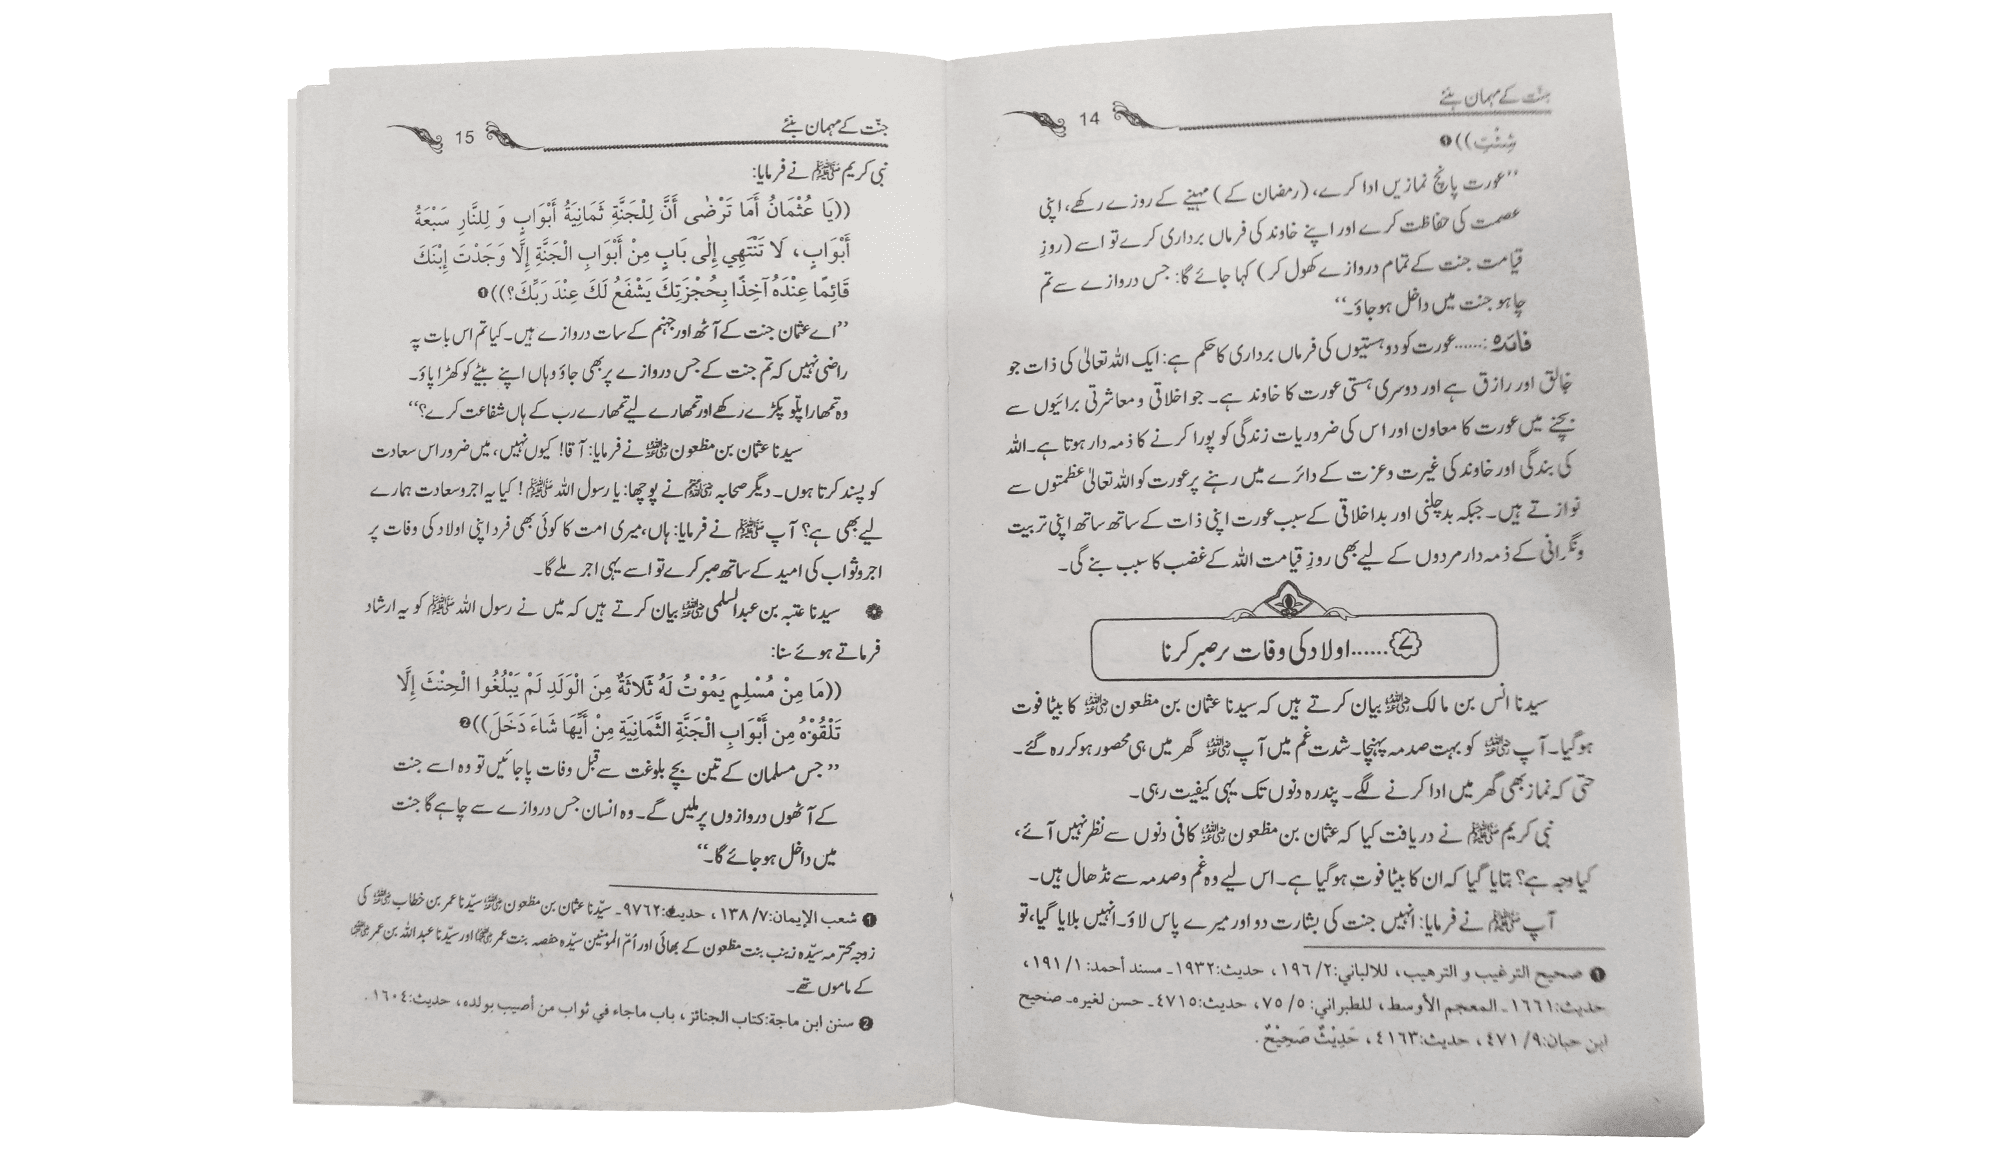 جنت کے مہمان بنئے
14
شِئْتِ))❶
’’عورت پانچ نمازیں ادا کرے، (رمضان کے) مہینے کے روزے رکھے، اپنی
عصمت کی حفاظت کرے اور اپنے خاوند کی فرماں برداری کرے تو اسے (روزِ
قیامت جنت کے تمام دروازے کھول کر) کہا جائے گا: جس دروازے سے تم
چاہو جنت میں داخل ہو جاؤ۔‘‘
فائدہ:......عورت کو دو ہستیوں کی فرماں برداری کا حکم ہے: ایک اللہ تعالیٰ کی ذات جو
خالق اور رازق ہے اور دوسری ہستی عورت کا خاوند ہے۔ جو اخلاقی و معاشرتی برائیوں سے
بچنے میں عورت کا معاون اور اس کی ضروریات زندگی کو پورا کرنے کا ذمہ دار ہوتا ہے۔ اللہ
کی بندگی اور خاوند کی غیرت و عزت کے دائرے میں رہنے پر عورت کو اللہ تعالیٰ عظمتوں سے
نوازتے ہیں۔ جبکہ بدچلنی اور بداخلاقی کے سبب عورت اپنی ذات کے ساتھ ساتھ اپنی تربیت
ونگرانی کے ذمہ دار مردوں کے لیے بھی روزِ قیامت اللہ کے غضب کا سبب بنے گی۔
۷......اولاد کی وفات پر صبر کرنا
سیدنا انس بن مالک رضی اللہ عنہ بیان کرتے ہیں کہ سیدنا عثمان بن مظعون رضی اللہ عنہ کا بیٹا فوت
ہوگیا۔ آپ رضی اللہ عنہ کو بہت صدمہ پہنچا۔ شدت غم میں آپ رضی اللہ عنہ گھر میں ہی محصور ہو کر رہ گئے۔
حتی کہ نماز بھی گھر میں ادا کرنے لگے۔ پندرہ دنوں تک یہی کیفیت رہی۔
نبی کریم ﷺ نے دریافت کیا کہ عثمان بن مظعون رضی اللہ عنہ کافی دنوں سے نظر نہیں آئے،
کیا وجہ ہے؟ بتایا گیا کہ ان کا بیٹا فوت ہوگیا ہے۔ اس لیے وہ غم و صدمہ سے نڈھال ہیں۔
آپ ﷺ نے فرمایا: انہیں جنت کی بشارت دو اور میرے پاس لاؤ۔ انہیں بلایا گیا، تو
❶ صحیح الترغیب و الترهیب، للالباني: ۲/ ۱۹۶، حدیث: ۱۹۳۲۔ مسند أحمد: ۱/ ۱۹۱،
حدیث: ۱۶۶۱۔ المعجم الأوسط، للطبراني: ۵/ ۷۵، حدیث: ٤٧١٥۔ حسن لغیرہ۔ صحیح
ابن حبان: ۹/ ٤٧١، حدیث: ٤١٦٣، حَدِيْثٌ صَحِيْحٌ.
جنت کے مہمان بنئے
15
نبی کریم ﷺ نے فرمایا:
((يَا عُثْمَانُ أَمَا تَرْضٰى أَنَّ لِلْجَنَّةِ ثَمَانِيَةُ أَبْوَابٍ وَ لِلنَّارِ سَبْعَةُ
أَبْوَابٍ، لَا تَنْتَهِي إِلٰى بَابٍ مِنْ أَبْوَابِ الْجَنَّةِ إِلَّا وَجَدْتَ إِبْنَكَ
قَائِمًا عِنْدَهُ آخِذًا بِحُجْزَتِكَ يَشْفَعُ لَكَ عِنْدَ رَبِّكَ؟))❶
’’اے عثمان جنت کے آٹھ اور جہنم کے سات دروازے ہیں۔ کیا تم اس بات پہ
راضی نہیں کہ تم جنت کے جس دروازے پر بھی جاؤ وہاں اپنے بیٹے کو کھڑا پاؤ۔
وہ تمہارا پلّو پکڑے رکھے اور تمہارے لیے تمہارے رب کے ہاں شفاعت کرے؟‘‘
سیدنا عثمان بن مظعون رضی اللہ عنہ نے فرمایا: آقا! کیوں نہیں، میں ضرور اس سعادت
کو پسند کرتا ہوں۔ دیگر صحابہ رضی اللہ عنہم نے پوچھا: یا رسول اللہ ﷺ! کیا یہ اجر و سعادت ہمارے
لیے بھی ہے؟ آپ ﷺ نے فرمایا: ہاں، میری امت کا کوئی بھی فرد اپنی اولاد کی وفات پر
اجر و ثواب کی امید کے ساتھ صبر کرے تو اسے یہی اجر ملے گا۔
❁ سیدنا عتبہ بن عبد السلمی رضی اللہ عنہ بیان کرتے ہیں کہ میں نے رسول اللہ ﷺ کو یہ ارشاد
فرماتے ہوئے سنا:
((مَا مِنْ مُسْلِمٍ يَمُوْتُ لَهُ ثَلَاثَةٌ مِنَ الْوَلَدِ لَمْ يَبْلُغُوا الْحِنْثَ إِلَّا
تَلْقَوْهُ مِن أَبْوَابِ الْجَنَّةِ الثَّمَانِيَةِ مِنْ أَيِّهَا شَاءَ دَخَلَ))❷
’’جس مسلمان کے تین بچے بلوغت سے قبل وفات پا جائیں تو وہ اسے جنت
کے آٹھوں دروازوں پر ملیں گے۔ وہ انسان جس دروازے سے چاہے گا جنت
میں داخل ہو جائے گا۔‘‘
❶ شعب الإیمان: ۷/ ۱۳۸، حدیث: ۹۷۶۲۔ سیّدنا عثمان بن مظعون رضی اللہ عنہ سیّدنا عمر بن خطاب رضی اللہ عنہ کی
زوجہ محترمہ سیّدہ زینب بنت مظعون کے بھائی اور اُمّ المومنین سیّدہ حفصہ بنت عمر رضی اللہ عنہا اور سیّدنا عبد اللہ بن عمر رضی اللہ عنہ
کے ماموں تھے۔
❷ سنن ابن ماجة: کتاب الجنائز، باب ماجاء في ثواب من أصیب بولده، حدیث: ١٦٠٤.